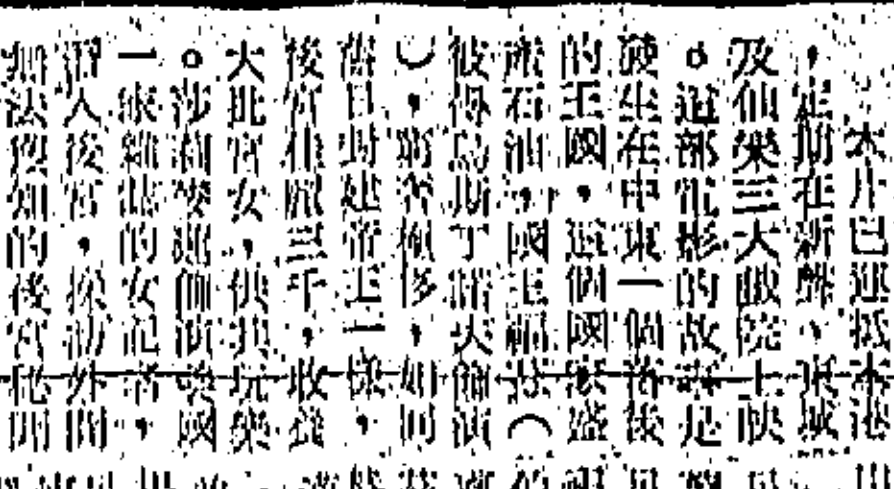 大片已運抵本港
，定期在新聲、東城
及仙樂三大戲院上映
。這部電影的故事是
發生在中東一個落後
的王國，這個國家盛
產石油，國王福
彼得烏斯丁諾夫飾演
），窮奢極侈，如同
舊日封建帝王一樣，
後宮佳麗三千，收養
大批宮女，供其玩樂
。莎莉
一家雜誌的女記者，
潛入後宮，採訪外間
無法得知的後宮秘聞